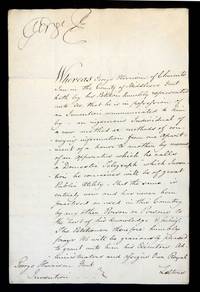 George R
Whereas George Harrison of Clements
Inn in the County of Middlesex Gent
hath by his Petition humbly represented
unto Us that he is in possession of
an Invention communicated to him
by an ingenious Individual of
a new method or methods of con-
veying information from one
of a house to another by means
of an apparatus which he calls
a Domestic Telegraph which Inven-
tion he conceives will be of great
Public Utility That the same is
entirely new and has never been
practised or used in this Country
by any other Person or Persons to
the best of his knowledge & belief
The Petitioner therefore humbly
prays We will be graciously pleased
to grant unto him his Executors Ad-
ministrators and Assigns Our Royal
George Harrison Pat
Invention
Letters